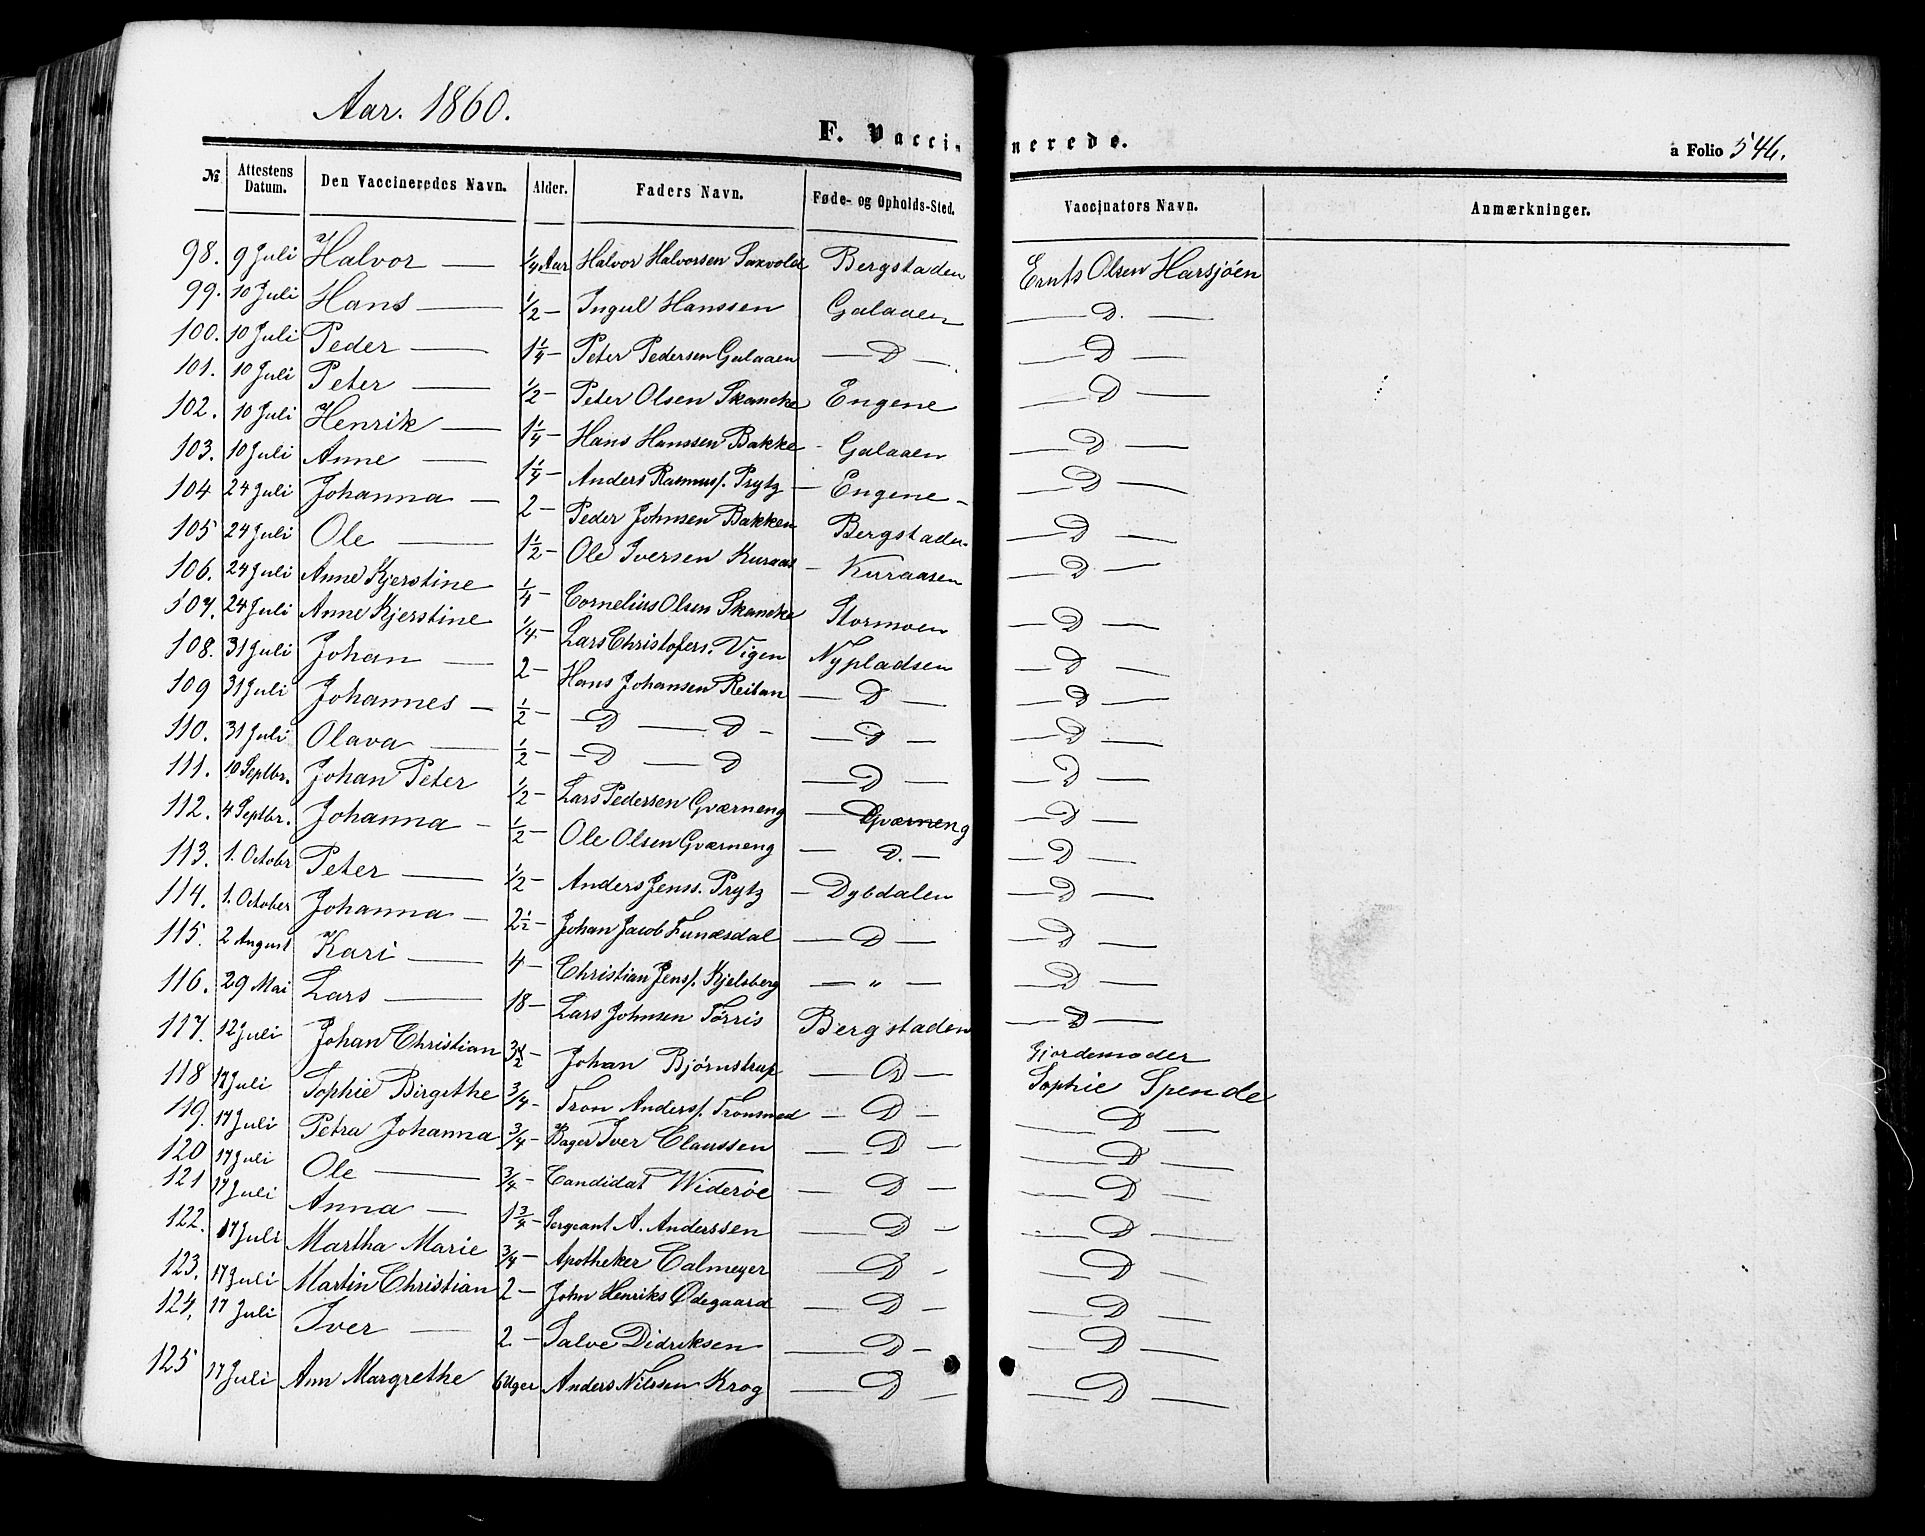 Aar. 1860.
F. Vaccinerede.
a Folio 546.
№ Attestens Datum. Den Vaccineredes Navn. Alder. Faders Navn. Føde- og Opholds-Sted. Vaccinators Navn. Anmærkninger.
98. 9 Juli Halvor — 1/4 Aar Halvor Halvorsen Saxvold Bergstaden Ernts Olsen Harsjöen
99. 10 Juli Hans — 1/2 — Ingul Hanssen Galaaen — D. —
100. 10 Juli Peder — 1 1/4 — Peter Pedersen Galaaen — D — — D —
101. 10 Juli Peter — 1/2 — Peter Olsen Skancke Engene — D —
102. 10 Juli Henrik — 1 1/4 — Hans Hanssen Bakke - Galaaen — D —
103. 10 Juli Anne — 1 1/4 — Anders Rasmus/. Prytz — Engene - — D —
104 24 Juli Johanna — 2 — Peder Johnsen Bakken Bergstaden — D —
105 24 Juli Ole — 1 1/2 — Ole Iversen Kuraas — Kuraasen — D —
106. 24 Juli Anne Kjerstine 1/4 — Cornelius Olsen Skancke Stormoen — D —
107. 24 Juli Anne Kjerstine 1/4 — Lars Christofers. Vigen Nypladsen — D —
108. 31 Juli Johan — 2 — Hans Johansen Reitan — D — — D —
109 31 Juli Johannes — 1/2 — — D — D — — D — — D —
110. 31 Juli Olava — 1/2 — — D — D — D — — D —
111. 10 Septbr. Johan Peter 1/2 — Lars Pedersen Gværneng — Gværneng — D —
112. 4 Septbr. Johanna — 1/2 — Ole Olsen Gværneng — D. — — D —
113. 1. Octobr Peter — 1/2 — Anders Jenss. Prytz — Dybdalen — D —
114. 1. October Johanna — 2 1/2 — Johan Jacob Funæsdal — D — — D —
115. 2 August Kari — 4 — Christian Jens/. Kjelsberg — " — — D —
116. 29 Mai Lars — 18 — Lars Johnsen Tørris Bergstaden — D —
117. 12 Juli Johan Christian Johan Bjørnstrup — D — Gjordemoder
Sophie Spende
118 17 Juli Sophie Birgithe 3/4 — Tron Anders/. Tronsmed — D — — D —
119. 17 Juli Petra Johanna 3/4 — Bager Iver Claussen — D — — D —
120 17 Juli Ole — 3/4 — Candidat Widerøe — D — — D —
121 17 Juli Anna — 1 3/4 — Sergeant A. Anderssen — D — — D —
122. 17 Juli Martha Marie 3/4 — Apotheker Calmeyer — D - — D —
123. 17 Juli Martin Christian 2 — John Henriks Ødegaard — D — — D —
124. 17 Juli Iver — 2 — Salve Didriksen — D — — D —
125 17 Juli Ann Margrethe 6 Uger Anders Nilssen Krog — D — — D —